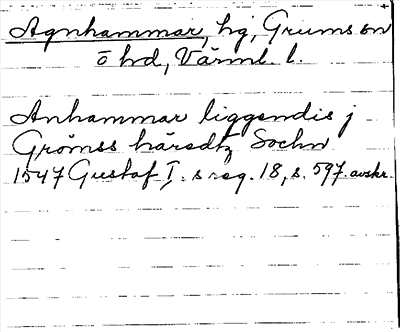 Agnhammar, hg, Grums sn
o hd, Värml. l.
Anhammar liggendis j
Grömss häredtz Sochn
1547 Gustaf I:s reg. 18, s. 597. avskr.